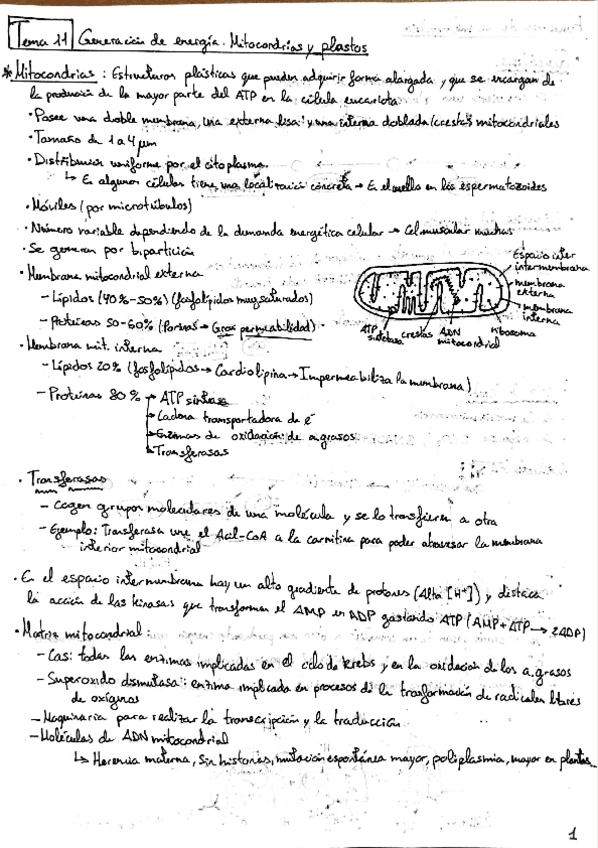 Tema 11 Generación de energía. Mitocondrias y plastos
* Mitocondrias : Estructuras plásticas que pueden adquirir forma alargada, y que se encargan de
la producción de la mayor parte del ATP en la célula eucariota.
· Posee una doble membrana, una externa lisa y una interna doblada (crestas mitocondriales
· Tamaño de 1 a 4 μm
· Distribución uniforme por el citoplasma.
↳ En algunas células tiene una localización concreta → En el cuello en los espermatozoides
· Móviles (por microtúbulos)
· Número variable dependiendo de la demanda energética celular → Cel muscular muchas
· Se generan por bipartición
· Membrana mitocondrial externa
- Lípidos (40%-50%) (fosfolípidos muy saturados)
- Proteínas 50-60% (Porinas → Gran permeabilidad)
Espacio inter
intermembrana
membrana
externa
membrana
interna
ribosoma
ATP
sintetasa
crestas
ADN
mitocondrial
· Membrana mit. interna
- Lípidos 20% (fosfolípidos → Cardiolipina → Impermeabiliza la membrana)
- Proteínas 80% → ATP sintasa
→ Cadena transportadora de e⁻
→ Enzimas de oxidación de a.grasos
→ Transferasas
· Transferasas
- Cogen grupos moleculares de una molécula y se lo transfieren a otra
- Ejemplo: Transferasa une el Acil-CoA a la carnitina para poder atravesar la membrana
interior mitocondrial
· En el espacio intermembrana hay un alto gradiente de protones (Alta [H⁺]) y destaca
la acción de las kinasas que transforman el AMP en ADP gastando ATP (AMP + ATP → 2ADP)
· Matriz mitocondrial:
- Casi todas las enzimas implicadas en el ciclo de Krebs y en la oxidación de los a.grasos
- Superoxido dismutasa: enzima implicada en procesos de la trasformación de radicales libres
de oxígenos
- Maquinaria para realizar la transcripción y la traducción
- Moléculas de ADN mitocondrial
↳ Herencia materna, Sin histonas, mutación espontánea mayor, poliplasmia, mayor en plantas...
1